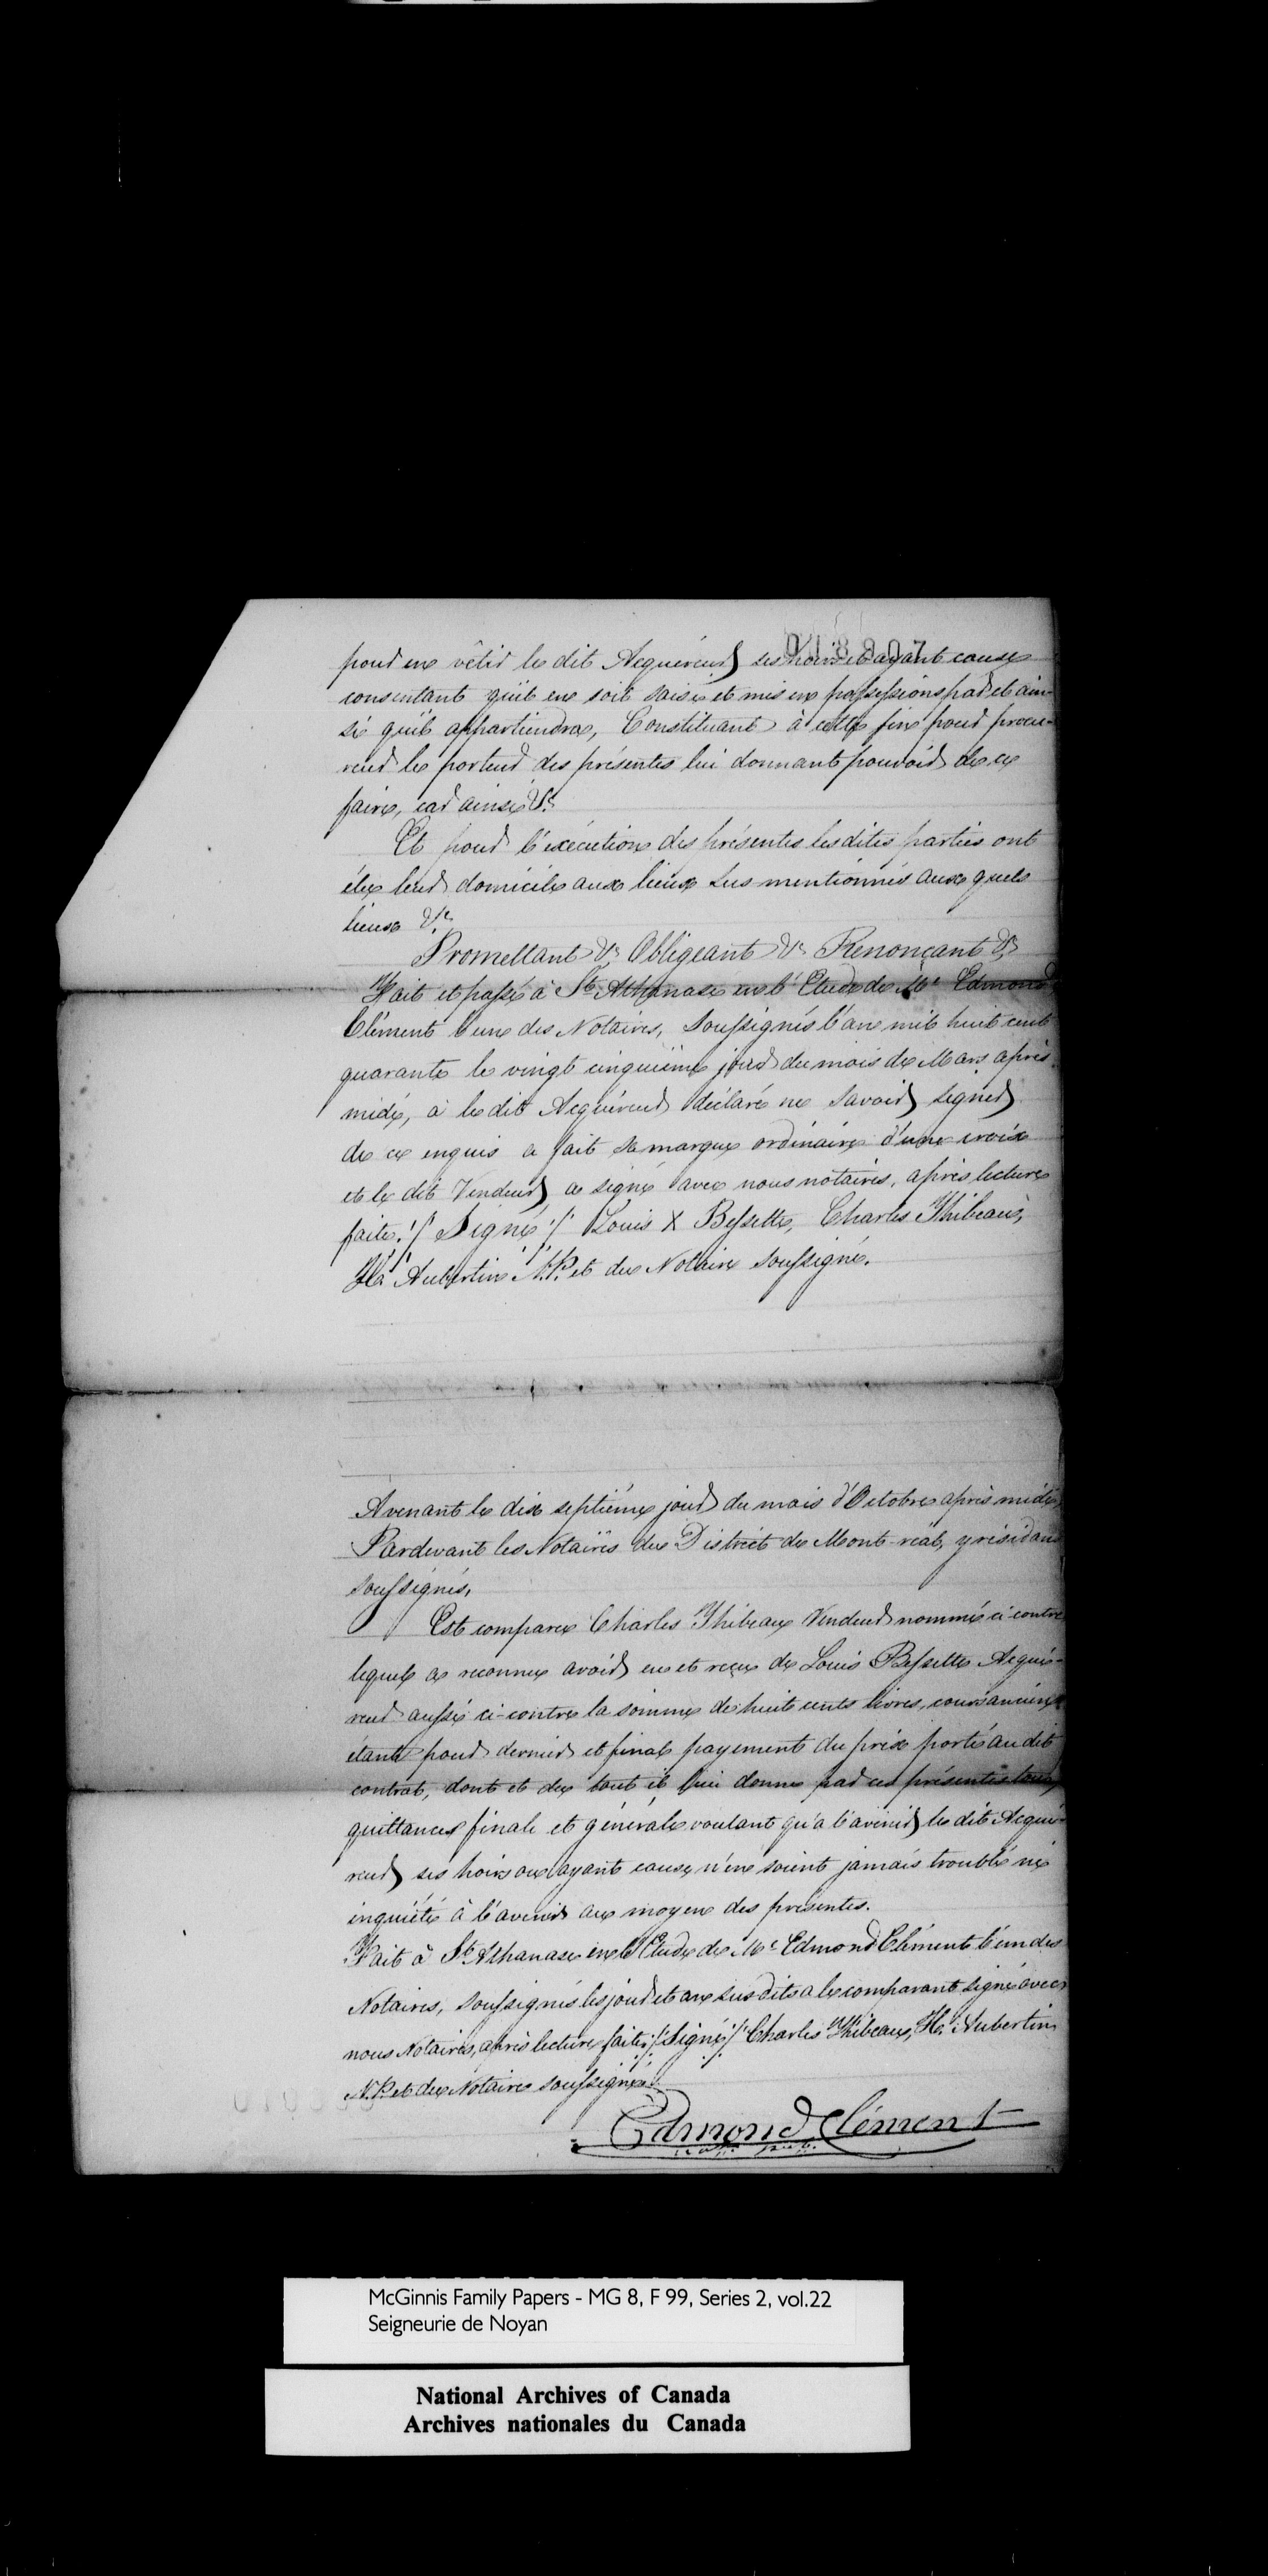 018807
pour en vêtir le dit Acquéreur ses hoirs et ayant cause
consentant qu'il en soit saisi et mis en possessions par et ain-
si qu'il appartiendra, Constituant à cette fin pour procu-
reur le porteur des présentes lui donnant pouvoir de ce
faire, car ainsi &c.
Et pour l'exécution des présentes lesdites parties ont
élu leur domicile aux lieux sus mentionnés aux quels
lieux &c.
Promettant &c Obligeant &c Renonçant &c
Fait et passé à St. Athanase en l'Etude de Me. Edmond
Clément l'un des Notaires, soussignés l'an mil huit cent
quarante le vingt cinquième jour du mois de Mars après
midi, a le dit Acquéreur déclaré ne savoir signer
de ce enquis a fait sa marque ordinaire d'une croix
et le dit Vendeur a signé avec nous notaires, après lecture
faite ./. Signé ./. Louis X Bessette, Charles Thibeaux,
H. Aubertin N.P. et du Notaire soussigné.
Avenant le dix septième jour du mois d'Octobre après midi
Pardevant les Notaires du District de Mont-réal, y résidant
soussignés,
Est comparu Charles Thibeaux Vendeur nommé ci contre
lequel a reconnu avoir eu et reçu de Louis Bessette Acqué-
reur aussi ci-contre la somme de huit cents livres, cours ancien
etant pour dernier et final payement du prix porté au dit
contrat, dont et du tout il lui donne par ces présentes
quittance finale et générale voulant qu'a l'avenir le dit Acqué-
reur ses hoirs ou ayant cause n'en soient jamais troublé ni
inquiété à l'avenir au moyen des présentes.
Fait à St. Athanase en l'Etude de Me. Edmond Clément l'un des
Notaires, soussignés les jour et an susdits a le comparant signé avec
nous Notaires, après lecture faite ./. Signé ./. Charles Thibeaux, H. Aubertin
N.P. et du Notaire soussigné.
Edmond Clément
McGinnis Family Papers - MG 8, F 99, Series 2, vol.22
Seigneurie de Noyan
National Archives of Canada
Archives nationales du Canada